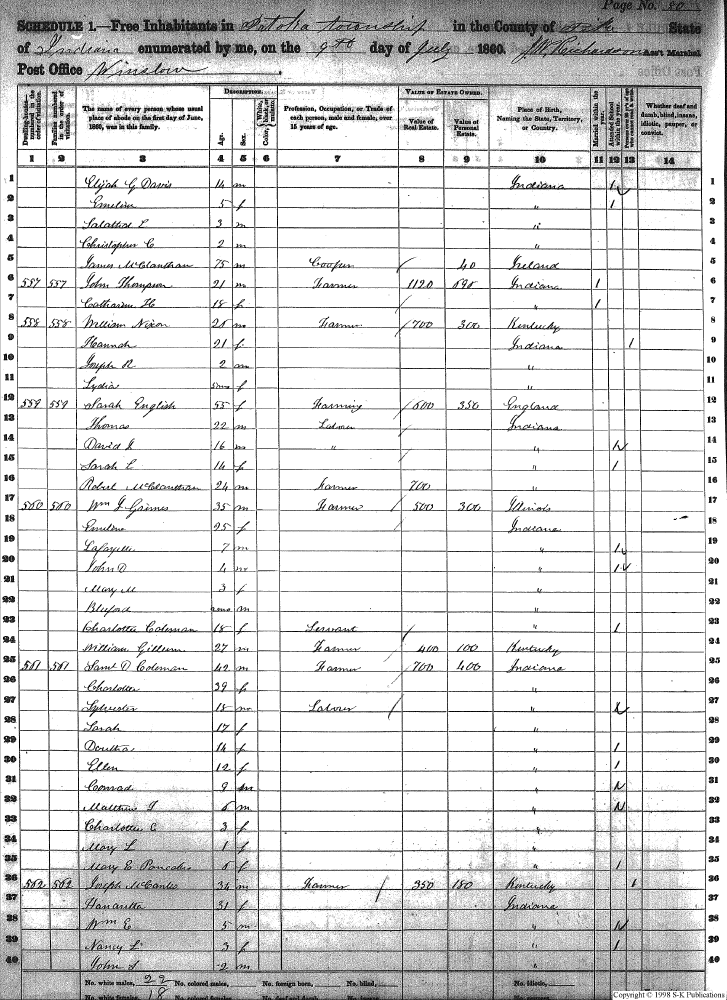 Page No. 80
SCHEDULE 1.—Free Inhabitants in Patoka township in the County of Pike State
of Indiana enumerated by me, on the 9th day of July 1860. J.W. Richardson Ass't Marshal
Post Office Winslow
Dwelling-houses— numbered in the order of visitation. Families numbered in the order of visitation. The name of every person whose usual place of abode on the first day of June, 1860, was in this family. DESCRIPTION. Age. Sex. Color, White, black, or mulatto. Profession, Occupation, or Trade of each person, male and female, over 15 years of age. VALUE OF ESTATE OWNED. Value of Real Estate. Value of Personal Estate. Place of Birth, Naming the State, Territory, or Country. Married within the year. Attended School within the year. Whether deaf and dumb, blind, insane, idiotic, pauper, or convict.
1 2 3 4 5 6 7 8 9 10 11 12 13 14
1 Elijah G Davis 14 m Indiana / 1
2 Emeline 5 f " / 2
3 3 m " 3
4 Christopher C 2 m " 4
5 James McGlauthan 75 m Cooper / 40 Ireland 5
6 557 557 John Thompson 21 m Farmer 1120 Indiana 1 6
7 Catharine H 18 f " 1 7
8 558 558 William Nixon 25 m Farmer / 700 300 Kentucky 8
9 Hannah 21 f Indiana 1 9
10 Joseph R 2 m " 10
11 Lydia 5mo f " 11
12 559 559 Sarah English 55 f Farming / 600 350 England 12
13 Thomas 22 m Laborer Indiana 13
14 David 16 m " / " 1 14
15 Sarah E 14 f " 1 15
16 Robert McGlauthan 24 m Farmer 700 " 16
17 560 560 Wm G Gaines 35 m Farmer / 500 300 Illinois 17
18 Emeline 25 f Indiana 18
19 Lafayette 7 m " 1 19
20 John D 4 m " 1 20
21 Mary M 3 f " 21
22 Bluford m " 22
23 Charlotte Coleman 18 f Servant / " 1 23
24 William Gillum 27 m Farmer 400 100 Kentucky 24
25 561 561 Saml D Coleman 42 m Farmer / 700 400 Indiana 25
26 Charlotte 39 f " 26
27 Sylvester 18 m Laborer / " 27
28 Sarah 17 f " 28
29 14 f " 1 29
30 Ellen 12 f " 1 30
31 Conrad 9 m " 31
32 Matthew 6 m " 32
33 Charlotte C 3 f " 33
34 Mary L 1 f " 34
35 Mary E 6 f " 1 35
36 562 562 Joseph McCanles 34 m Farmer 350 180 Kentucky 1 36
37 Hanaretta 31 f Indiana 37
38 Wm E 5 m " 38
39 Nancy L 3 f " 1 39
40 John S 2 m " 40
No. white males, 22 No. colored males, No. foreign born, No. blind, No. idiotic,
No. white females, 18 No. colored females, No. deaf and dumb, No. insane, No. convicts,
Copyright © 1998 S-K Publications